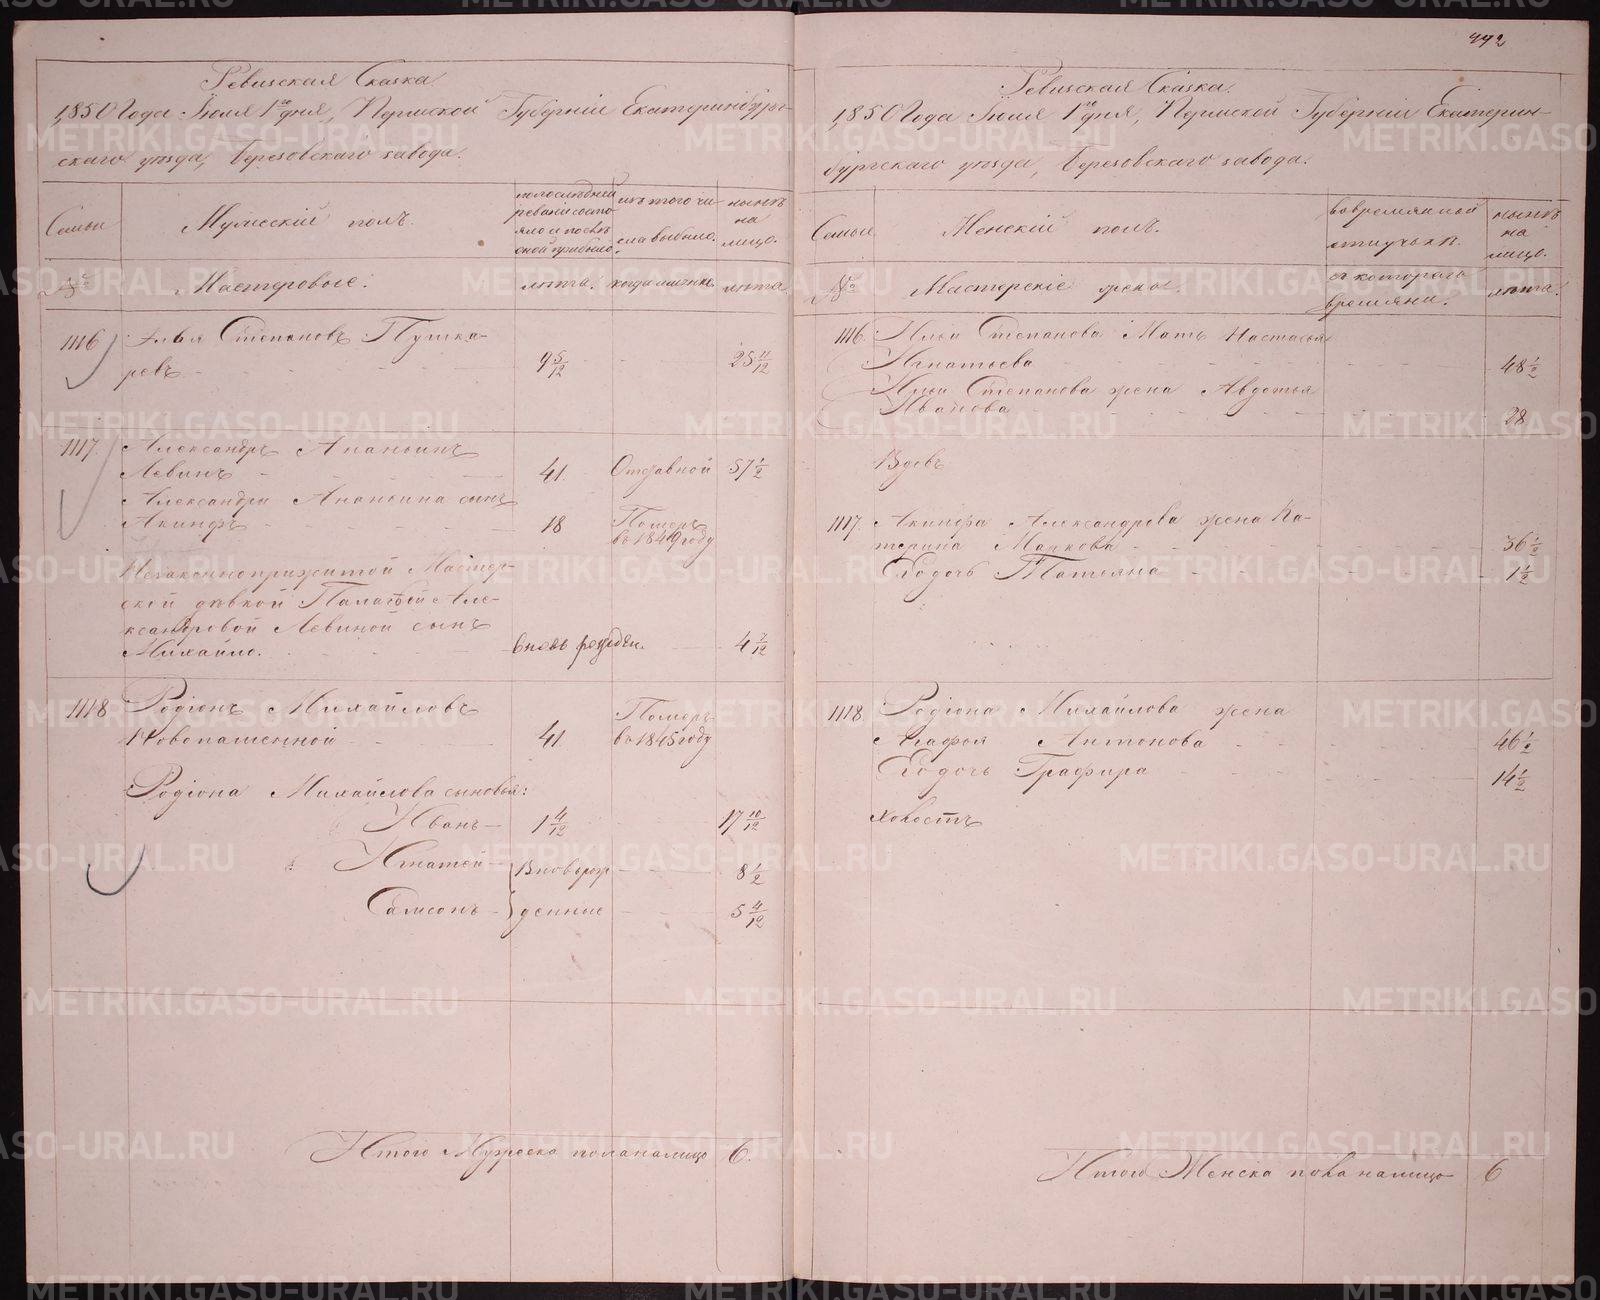 442
Ревизская Сказка
1850 Года Июля 1го дня, Пермской Губерніи Екатеринбург-
скаго уезда, Березовскаго завода.
Семьи
Мужескій полъ.
по последней
ревизіи состо-
яло и после
оной прибыло.
изъ того чи-
сла выбыло.
ныне
на
лицо.
№
Мастеровые:
лета.
когда именно.
лета.
1116 Илья Степановъ Пушка-
ревъ 9 5/12 25 11/12
1117. Александръ Ананьинъ
Левинъ 41. Отставной 57 1/2
Александра Ананьина сынъ
Акинфъ 18 Померъ
въ 1849 году
Незаконноприжитой Мастер-
ской девкой Палагѣей Але-
ксандровой Левиной сынъ
Михайло. вновь рожден. 4 7/12
1118 Родіонъ Михайловъ
Новопашенной 41. Померъ
въ 1845 году
Родіона Михайлова сыновья:
Иванъ 1 4/12 17 10/12
Игнатей Вноворож- 8 1/2
Самсонъ денные 5 4/12
Итого Мужеска пола на лицо 6.
Ревизская Сказка.
1850 Года Июля 1го дня, Пермской Губерніи Екатерин-
бургскаго уезда, Березовскаго завода.
Семьи
Женскій полъ.
во временной
отлучке.
ныне
на
лицо.
№
Мастерскіе жены.
съ котораго
времяни.
лета.
1116. Ильи Степанова Мать Настасья
Игнатьева 48 1/2
Ильи Степанова жена Авдотья
Иванова 28
Вдовъ
1117. Акинфа Александрова жена Ка-
терина Маркова 36 1/2
Ея дочь Татьяна 1 1/2
1118 Родіона Михайлова жена
Агафья Антонова 46 1/2
Ея дочь Графира 14 1/2
холостъ
Итого Женска пола на лицо 6
METRIKI.GASO-URAL.RU